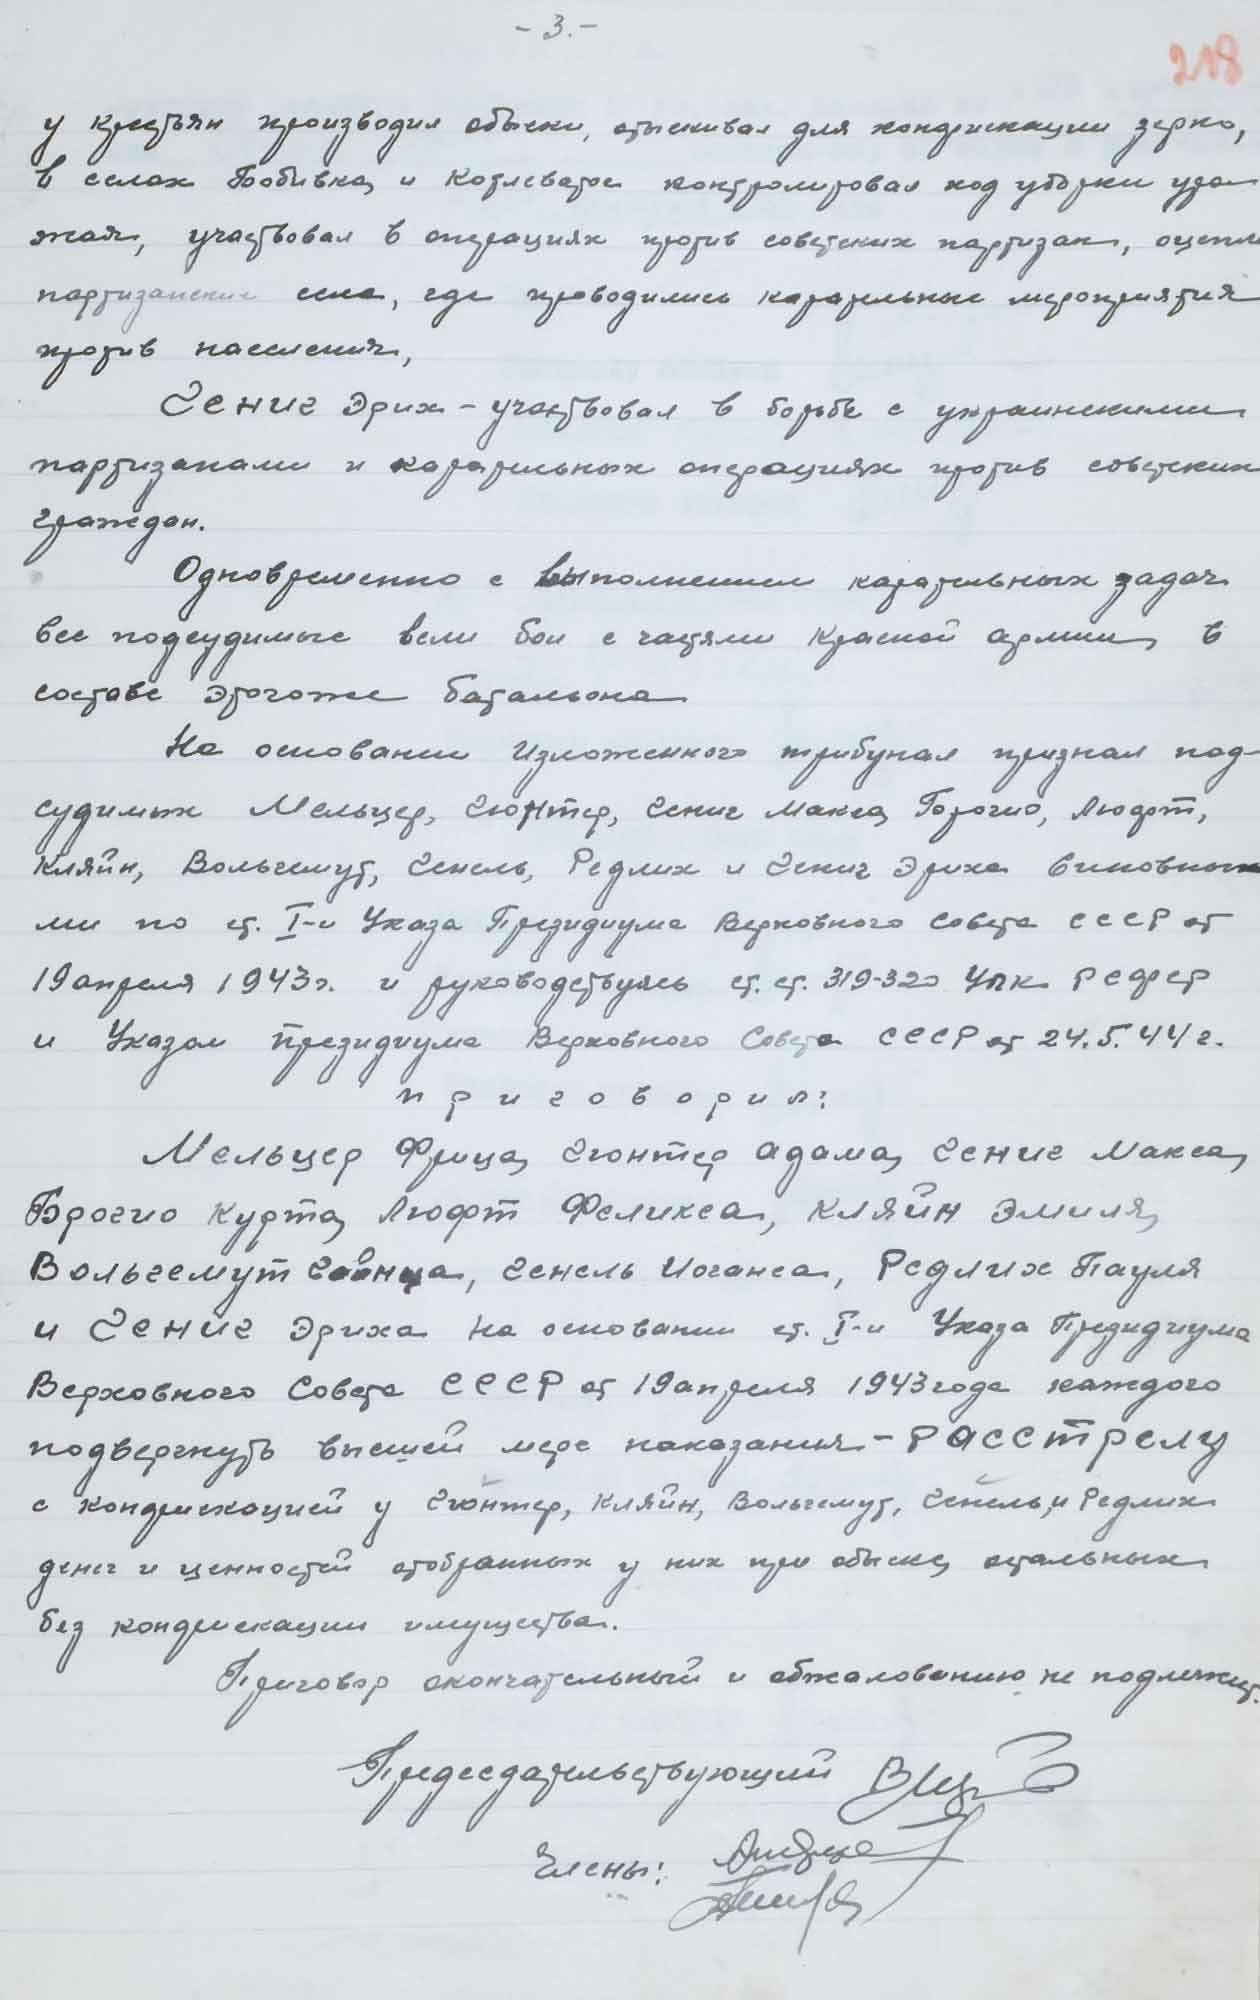 - 3. -
218
у крестьян производил обыски, отыскивал для конфискации зерно,
в селах Бобивка, и Котлеватое контролировал ход уборки уро-
жая, участвовал в операциях против советских партизан, оцеплял
партизанские села, где проводились карательные мероприятия
против населения,
Гениг Эрих - участвовал в борьбе с украинскими
партизанами и карательных операциях против советских
граждан.
Одновременно с выполнением карательных задач
все подсудимые вели бои с частями Красной армии, в
составе этогоже батальона
На основании изложенного трибунал признал под-
судимых Мельцер, Гюнтер, Гениг Макса, Борогио, Люфт,
Кляйн, Вольгемут, Генель, Редлих и Гениг Эриха виновны-
ми по ст. I-й Указа Президиума Верховного Совета СССР от
19 апреля 1943 г. и руководствуясь ст. ст. 319-320 УПК РСФСР
и Указом Президиума Верховного Совета СССР от 24.5.44 г.
п р и г о в о р и л:
Мельцер Фрица, Гюнтер Адама, Гениг Макса,
Брогио Курта, Люфт Феликса, Кляйн Эмиля,
Вольгемут Гейнца, Генель Иоганса, Редлих Пауля
и Гениг Эриха на основании ст. I-й Указа Президиума
Верховного Совета СССР от 19 апреля 1943 года каждого
подвергнуть высшей мере наказания - Расстрелу
с конфискацией у Гюнтер, Кляйн, Вольгемут, Генель, и Редлих
денег и ценностей отобранных у них при обыске, остальных
без конфискации имущества.
Приговор окончательный и обжалованию не подлежит.
Председательствующий
Члены: